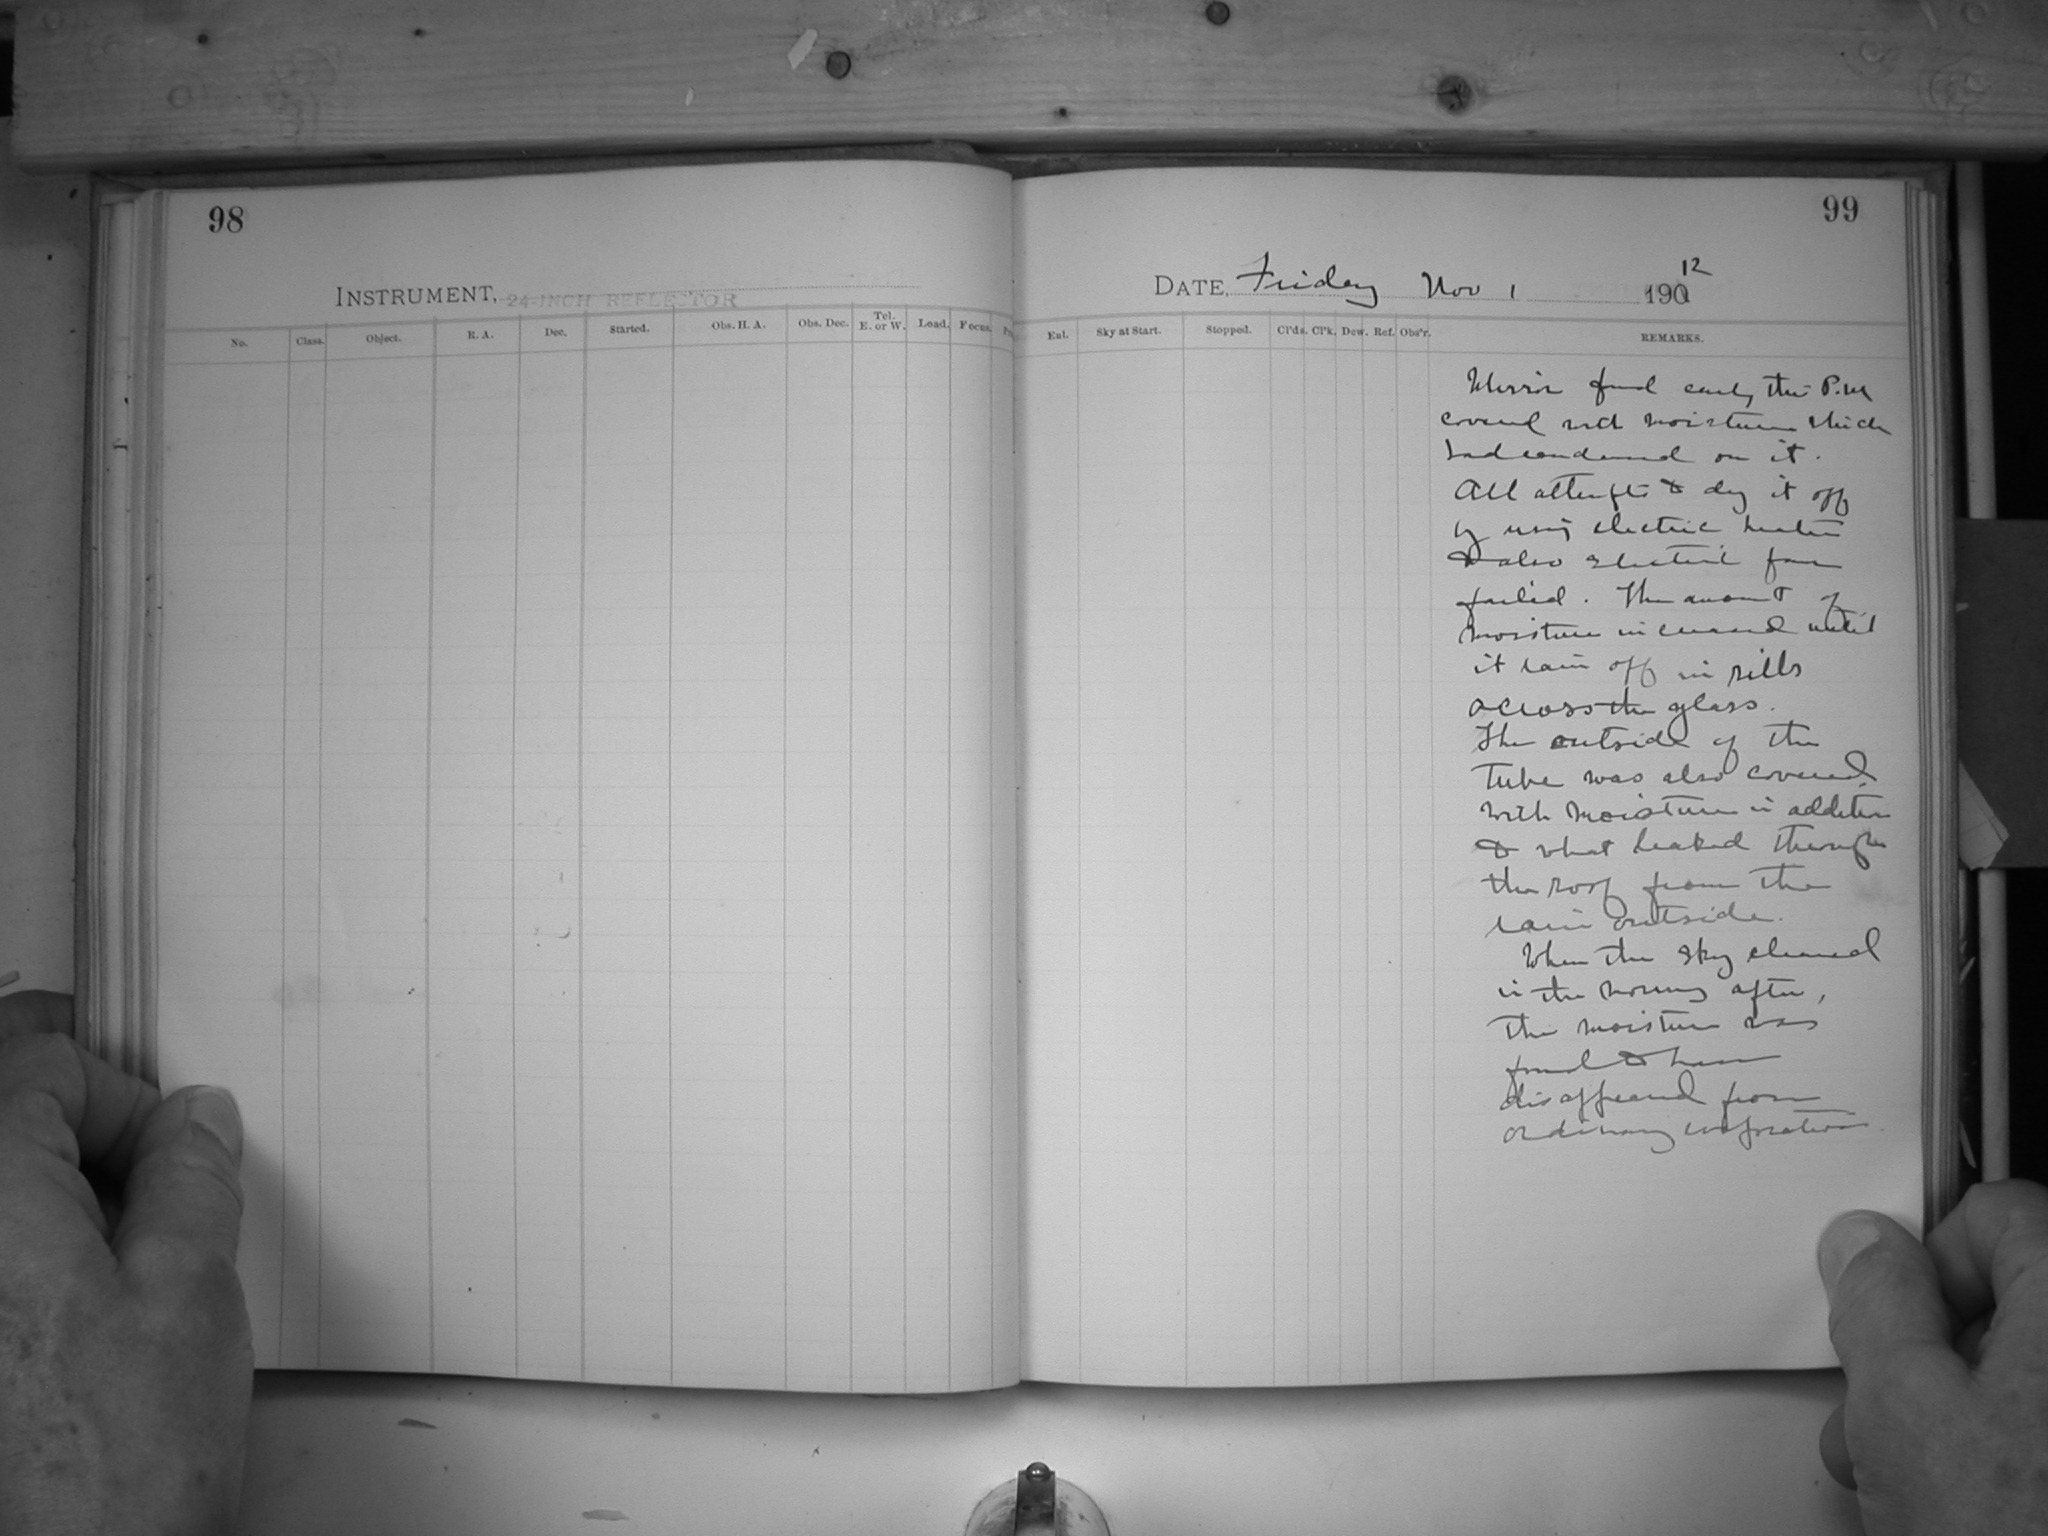 98
INSTRUMENT, 24-INCH REFLECTOR
No. Class. Object. R. A. Dec. Started. Obs. H. A. Obs. Dec. Tel. E. or W. Load. Focus.
99
DATE, Friday Nov 1 190 12
Eul. Sky at Start. Stopped. Cl'ds. Cl'k. Dew. Ref. Obs'r. REMARKS.
Mirror found early this P.M
covered with moisture which
had condensed on it.
All attempts to dry it off
by using electric heater
& also electric fan
failed. The amount of
moisture increased until
it rain off in rills
across the glass.
The outside of the
tube was also covered
with moisture in addition
to what leaked through
the roof from the
rain outside.
When the sky cleared
in the morning after,
the moisture was
found to have
disappeared from
ordinary evaporation.